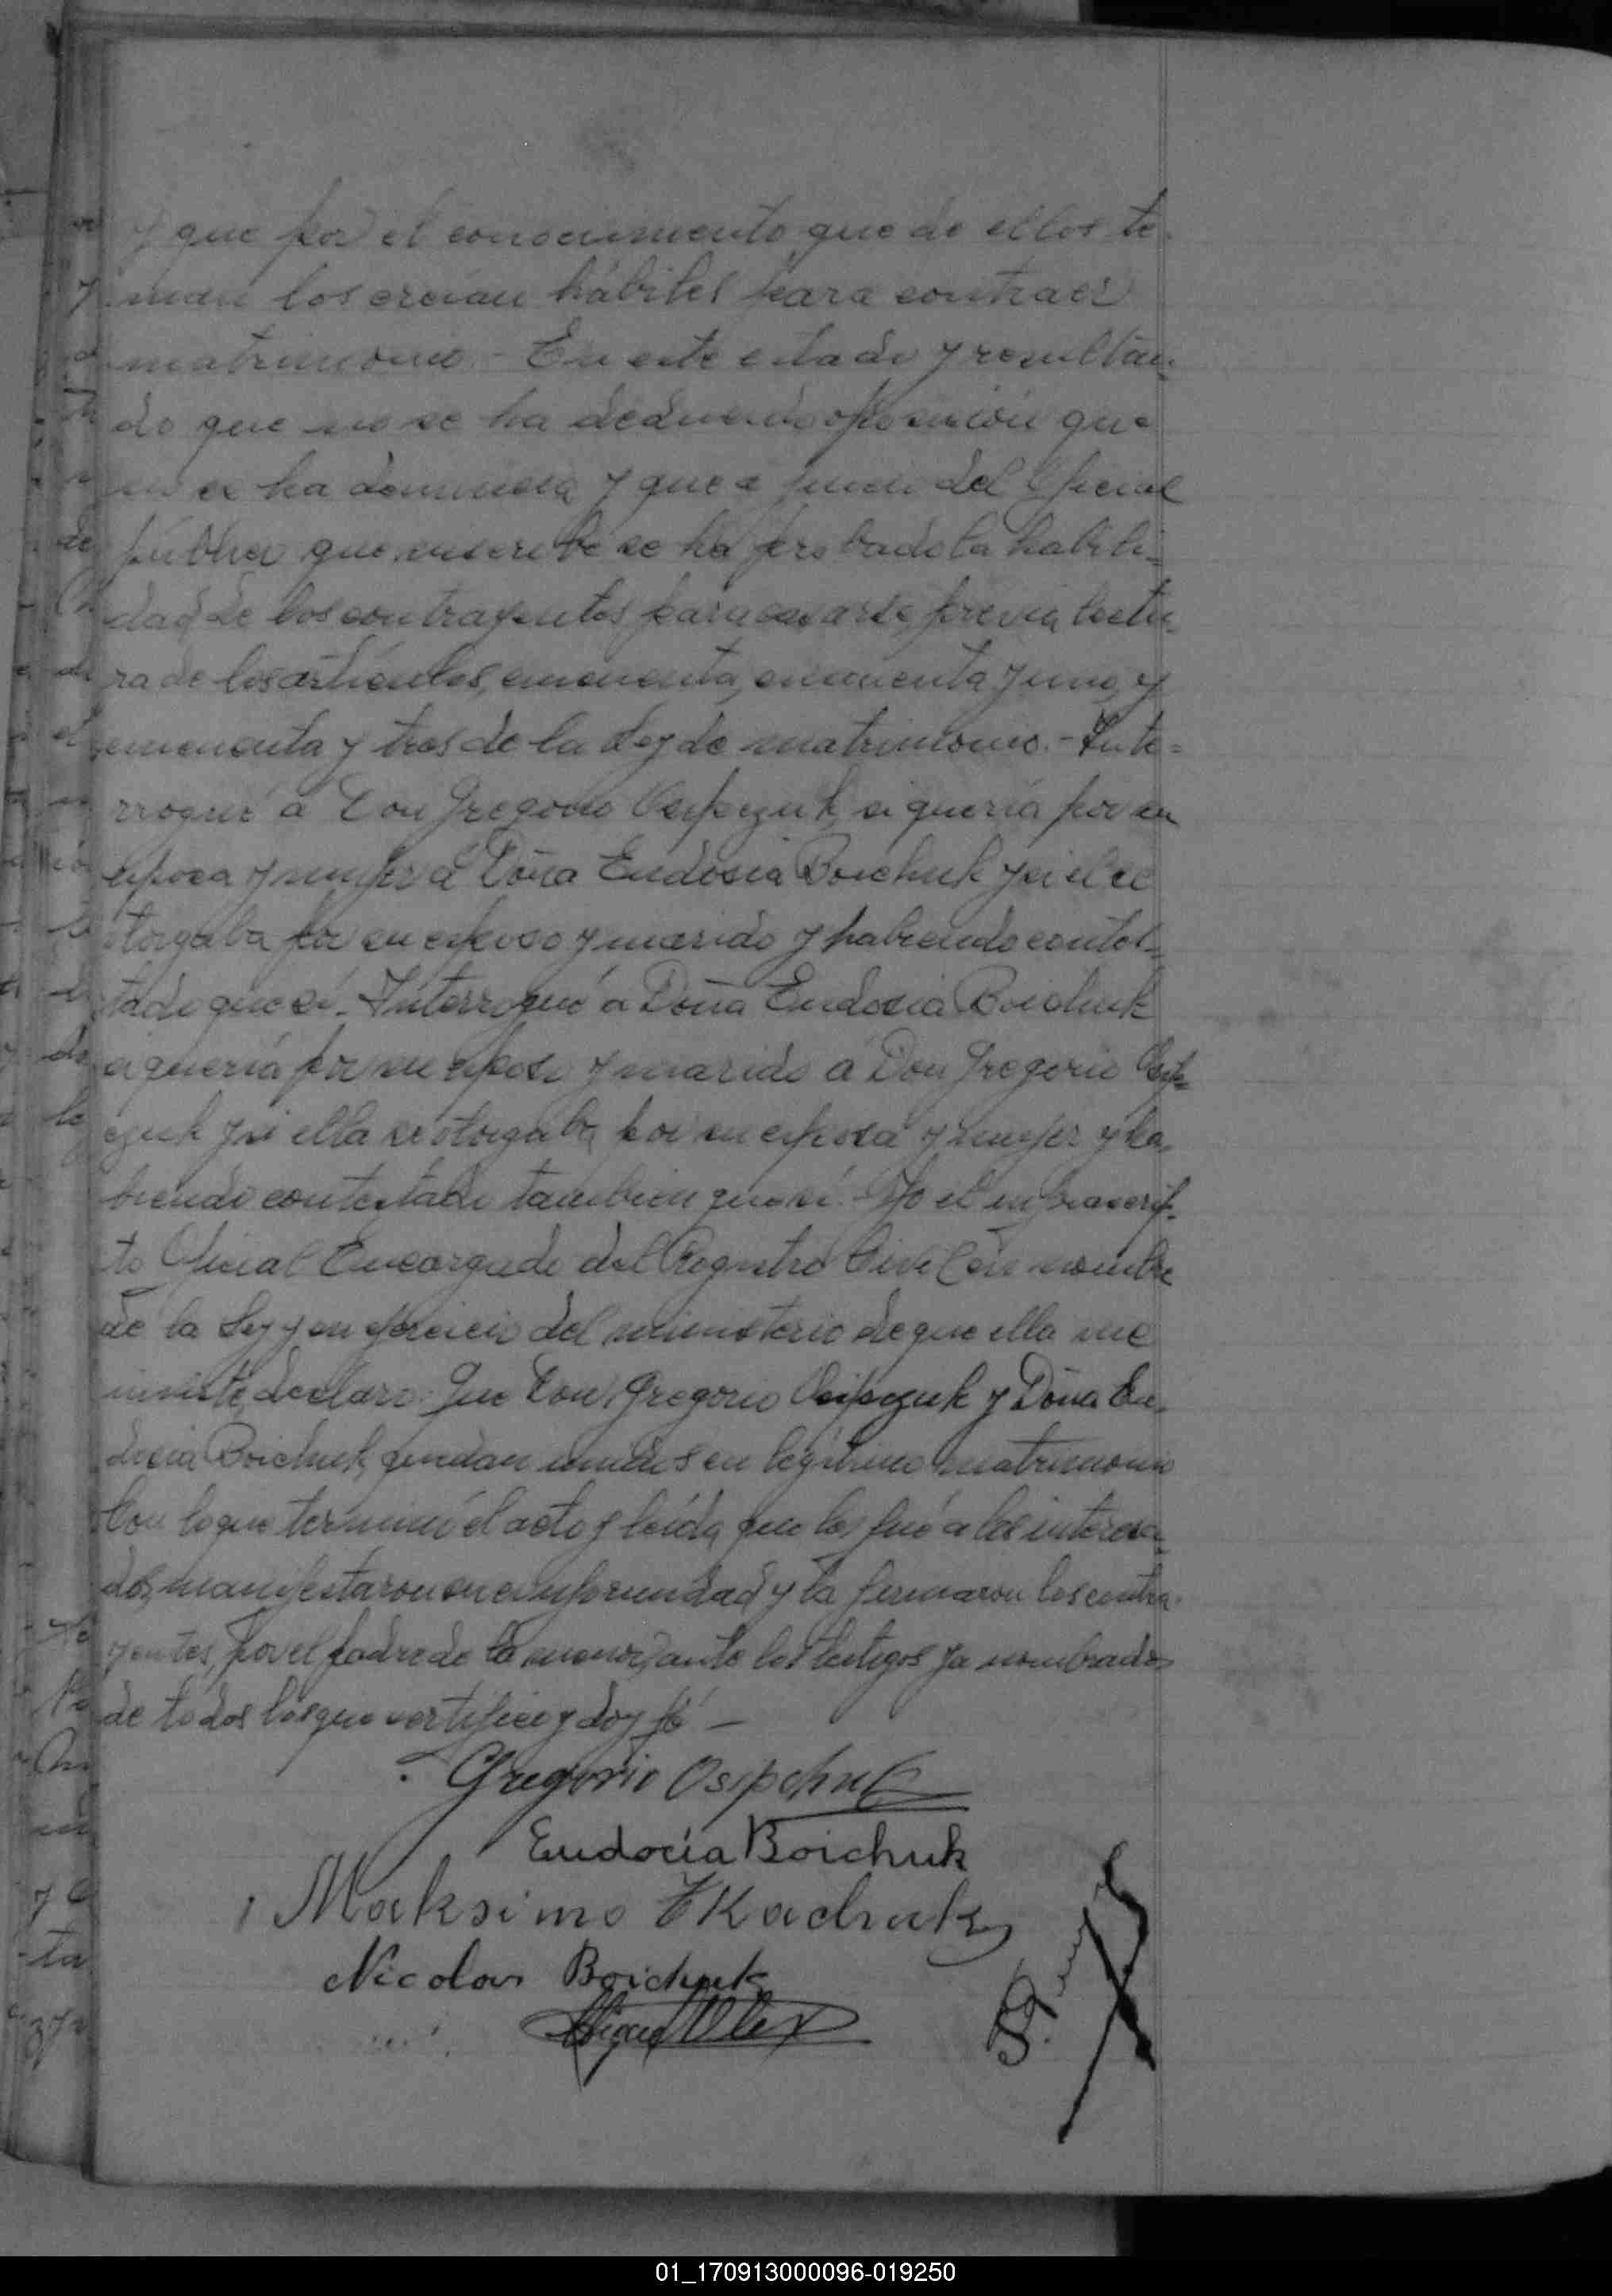 y que por el conocimiento que de ellos te-
nían los creían hábiles para contraer
matrimonio.- En este estado y resultan-
do que no se ha deducido oposición que
no se ha denuncia y que a juicio del Oficial
público que suscribe se ha probado la habili-
dad de los contrayentes para casarse, previa lectu-
ra de los artículos, cincuenta, cincuenta y uno, y
cincuenta y tres de la Ley de matrimonio.- Inte-
rrogué a Don Gregorio Osipczuk, si quería por su
esposa y mujer a Doña Eudosia Boichuk y si el se
otorgaba por su esposo y marido y habiendo contes-
tado que sí.- Interrogué a Doña Eudosia Boichuk
si quería por su esposo y marido a Don Gregorio Osip-
czuk y si ella se otorgaba por su esposa y mujer y ha-
biendo contestado también que sí.- Yo el infrascrip-
to Oficial Encargado del Registro Civil en nombre
de la Ley y en ejercicio del ministerio de que ella me
inviste, declaro: Que Don Gregorio Osipczuk y Doña Eu-
dosia Boichuk, quedan unidos en legítimo matrimonio
Con lo que terminó el acto y leída que les fué a los interesa-
dos, manifestaron su conformidad y la firmaron los contra-
yentes, por el padre de la menor, ante los testigos ya nombrados
de todos los que certifico y doy fé.-
Gregorio Osipchuk
Eudocia Boichuk
Maksimo TKachuk
Nicolas Boichuk
01_170913000096-019250